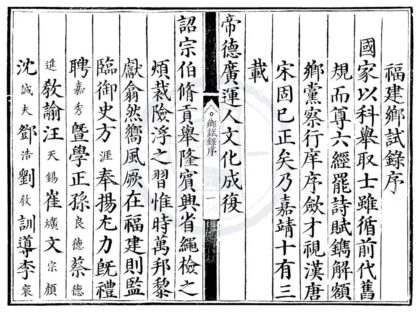 福建鄉試錄序
國家以科舉取士雖循前代舊
規而尊六經罷詩賦鐫解額
鄉黨察行庠序斂才視漢唐
宋固已正矣乃嘉靖十有三
載
鄉試錄序
帝德廣運人文化成復
詔宗伯脩貢舉隆賓興省繩檢之
煩裁險浮之習惟時萬邦黎
獻翕然嚮風厥在福建則監
臨御史方涯奉揚尤力旣禮
聘嘉秀暨學正孫良德蔡良德
進敎諭汪天錫崔嬪文宗顏
沈誠夫鄧浩劉敎訓導李衮